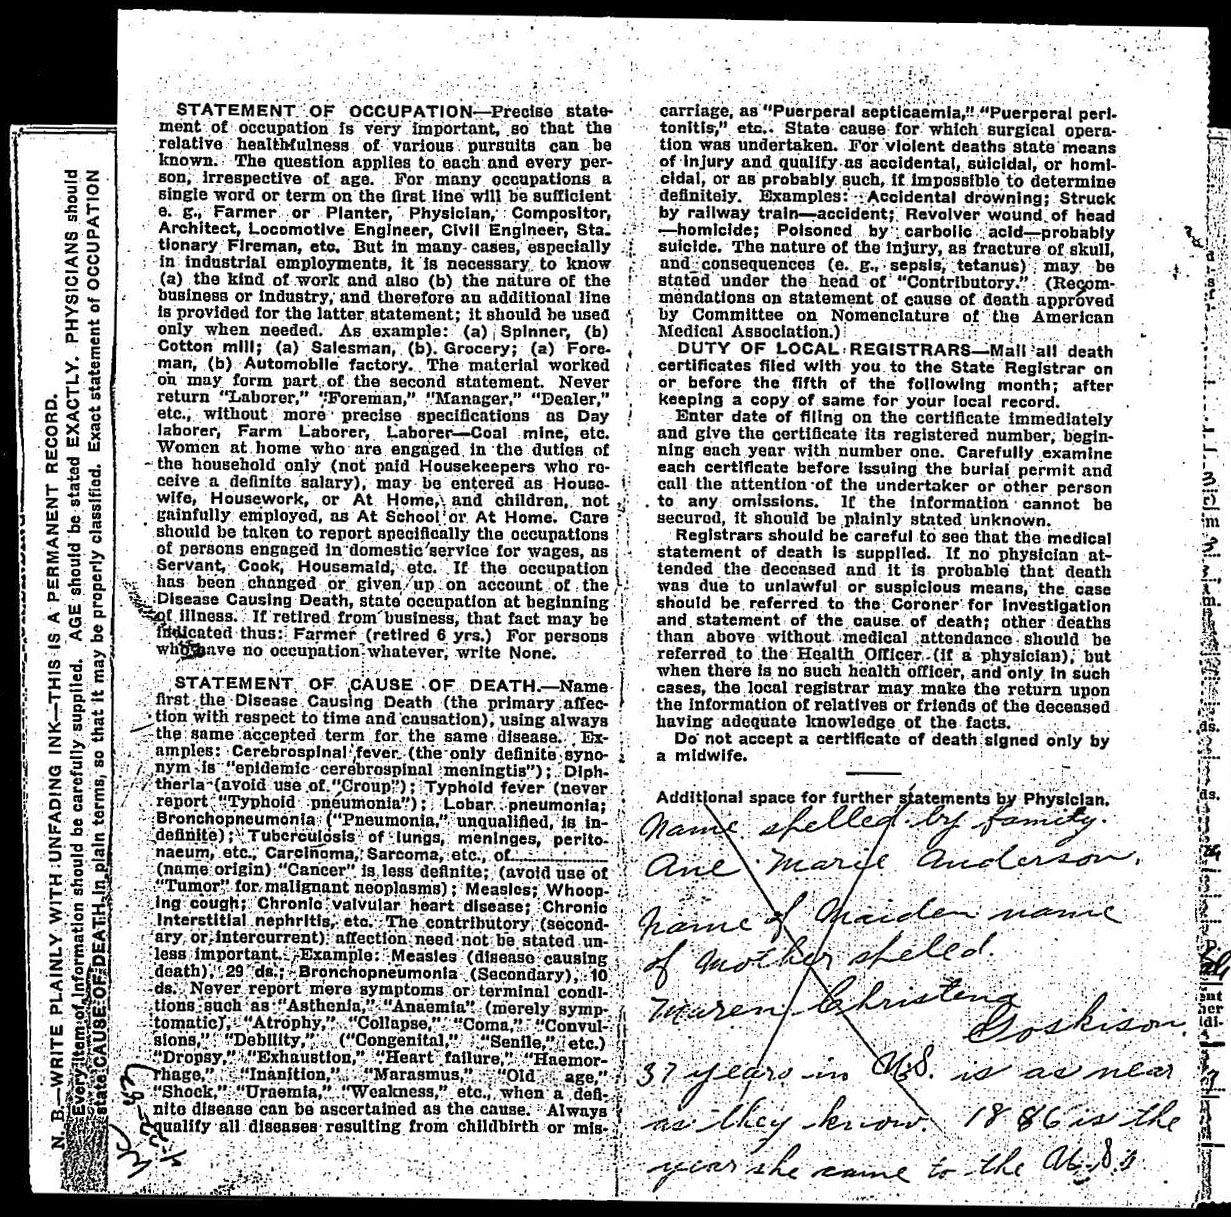 N. B.—WRITE PLAINLY WITH UNFADING INK—THIS IS A PERMANENT RECORD.
Every item of information should be carefully supplied. AGE should be stated EXACTLY. PHYSICIANS should
state CAUSE OF DEATH in plain terms, so that it may be properly classified. Exact statement of OCCUPATION
STATEMENT OF OCCUPATION—Precise state-
ment of occupation is very important, so that the
relative healthfulness of various pursuits can be
known. The question applies to each and every per-
son, irrespective of age. For many occupations a
single word or term on the first line will be sufficient
e. g., Farmer or Planter, Physician, Compositor,
Architect, Locomotive Engineer, Civil Engineer, Sta-
tionary Fireman, etc. But in many cases, especially
in industrial employments, it is necessary to know
(a) the kind of work and also (b) the nature of the
business or industry, and therefore an additional line
is provided for the latter statement; it should be used
only when needed. As example: (a) Spinner, (b)
Cotton mill; (a) Salesman, (b). Grocery; (a) Fore-
man, (b) Automobile factory. The material worked
on may form part of the second statement. Never
return "Laborer," "Foreman," "Manager," "Dealer,"
etc., without more precise specifications as Day
laborer, Farm Laborer, Laborer—Coal mine, etc.
Women at home who are engaged in the duties of
the household only (not paid Housekeepers who re-
ceive a definite salary), may be entered as House-
wife, Housework, or At Home, and children, not
gainfully employed, as At School or At Home. Care
should be taken to report specifically the occupations
of persons engaged in domestic service for wages, as
Servant, Cook, Housemaid, etc. If the occupation
has been changed or given up on account of the
Disease Causing Death, state occupation at beginning
of illness. If retired from business, that fact may be
indicated thus: Farmer (retired 6 yrs.) For persons
who have no occupation whatever, write None.
STATEMENT OF CAUSE OF DEATH.—Name
first the Disease Causing Death (the primary affec-
tion with respect to time and causation), using always
the same accepted term for the same disease. Ex-
amples: Cerebrospinal fever (the only definite syno-
nym is "epidemic cerebrospinal meningtis"); Diph-
theria (avoid use of "Croup"); Typhoid fever (never
report "Typhoid pneumonia"); Lobar pneumonia;
Bronchopneumonia ("Pneumonia," unqualified, is in-
definite); Tuberculosis of lungs, meninges, perito-
naeum, etc., Carcinoma, Sarcoma, etc., of
(name origin) "Cancer" is less definite; (avoid use of
"Tumor" for malignant neoplasms); Measles; Whoop-
ing cough; Chronic valvular heart disease; Chronic
interstitial nephritis, etc. The contributory (second-
ary or intercurrent) affection need not be stated un-
less important. Example: Measles (disease causing
death), 29 ds.; Bronchopneumonia (Secondary), 10
ds. Never report mere symptoms or terminal condi-
tions such as "Asthenia," "Anaemia" (merely symp-
tomatic), "Atrophy," "Collapse," "Coma," "Convul-
sions," "Debility," ("Congenital," "Senile," etc.)
"Dropsy," "Exhaustion," "Heart failure," "Haemor-
rhage," "Inanition," "Marasmus," "Old age,"
"Shock," "Uraemia," "Weakness," etc., when a defi-
nite disease can be ascertained as the cause. Always
qualify all diseases resulting from childbirth or mis-
carriage, as "Puerperal septicaemia," "Puerperal peri-
tonitis," etc. State cause for which surgical opera-
tion was undertaken. For violent deaths state means
of injury and qualify as accidental, suicidal, or homi-
cidal, or as probably such, if impossible to determine
definitely. Examples: Accidental drowning; Struck
by railway train—accident; Revolver wound of head
—homicide; Poisoned by carbolic acid—probably
suicide. The nature of the injury, as fracture of skull,
and consequences (e. g., sepsis, tetanus) may be
stated under the head of "Contributory." (Recom-
mendations on statement of cause of death approved
by Committee on Nomenclature of the American
Medical Association.)
DUTY OF LOCAL REGISTRARS—Mail all death
certificates filed with you to the State Registrar on
or before the fifth of the following month; after
keeping a copy of same for your local record.
Enter date of filing on the certificate immediately
and give the certificate its registered number, begin-
ning each year with number one. Carefully examine
each certificate before issuing the burial permit and
call the attention of the undertaker or other person
to any omissions. If the information cannot be
secured, it should be plainly stated unknown.
Registrars should be careful to see that the medical
statement of death is supplied. If no physician at-
tended the deceased and it is probable that death
was due to unlawful or suspicious means, the case
should be referred to the Coroner for investigation
and statement of the cause of death; other deaths
than above without medical attendance should be
referred to the Health Officer (if a physician), but
when there is no such health officer, and only in such
cases, the local registrar may make the return upon
the information of relatives or friends of the deceased
having adequate knowledge of the facts.
Do not accept a certificate of death signed only by
a midwife.
Additional space for further statements by Physician.
Name spelled by family.
Ane Marie Anderson.
Name of Maiden name
of Mother spelled.
Maren Christena
Goskison.
37 years in U.S. is as near
as they know 1886 is the
year she came to the U.S.